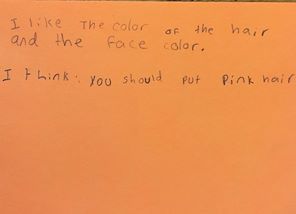 I like The color of the hair
and the face color.
I think: you should put pink hair